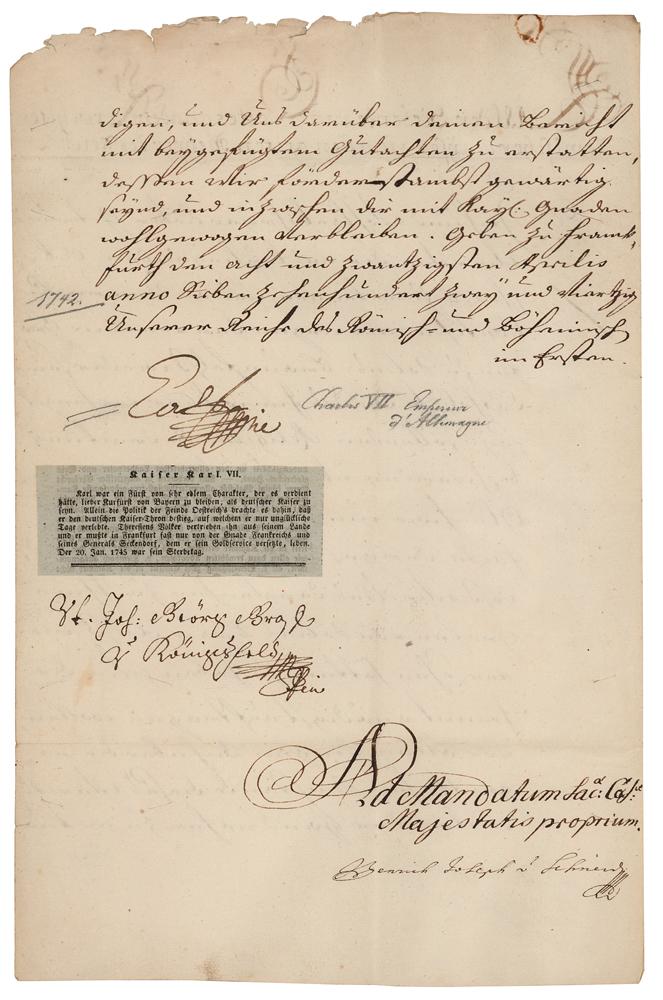 digen, und Uns darüber deinen Bericht
mit beygefügtem Gutachten zu erstatten,
dessen Wir förderstambst gewärtig
seynd, und inzwischen dir mit Kay: Gnaden
wohlgewogen verbleiben. Geben zu Franck-
furth den acht und zwantzigsten Aprilis
1742.
anno Siebenzehenhundert zwey und viertzig
Unserer Reiche des Römisch- und Böheimisch
im Ersten.
Carl
Charles VII. Empereur
d'Allemagne
Kaiser Karl. VII.
Karl war ein Fürst von sehr edlem Charakter, der es verdient
hätte, lieber Kurfürst von Bayern zu bleiben, als deutscher Kaiser zu
seyn. Allein die Politik der Feinde Oestreich's brachte es dahin, daß
er den deutschen Kaiser-Thron bestieg, auf welchem er nur unglückliche
Tage verlebte. Theresiens Völker vertrieben ihn aus seinem Lande
und er mußte in Frankfurt fast nur von der Gnade Frankreichs und
seines Generals Seckendorf, dem er sein Goldservice versetzte, leben.
Der 20. Jan. 1745 war sein Sterbetag.
Vt. Joh: Georg Graf
v Königsfeld
Ad Mandatum Sac: Caes:
Majestatis proprium.
Henrich Joseph v Schneid